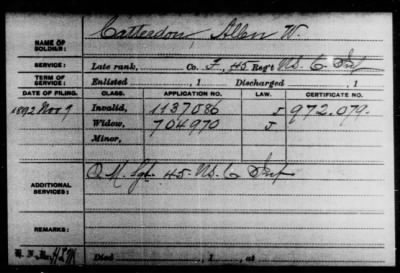 NAME OF SOLDIER: Catterdon, Allen W.
SERVICE: Late rank, Co. F, 45 Reg't U.S. C Inf
TERM OF SERVICE: Enlisted , 1 Discharged , 1
DATE OF FILING. CLASS. APPLICATION NO. LAW. CERTIFICATE NO.
1892 Nov 9 Invalid, 1137086 J 972.079.
Widow, 704970 J
Minor,
ADDITIONAL SERVICES: Q M. Sgt. 45- U.S. C Inf
REMARKS:
Died , 1 , at